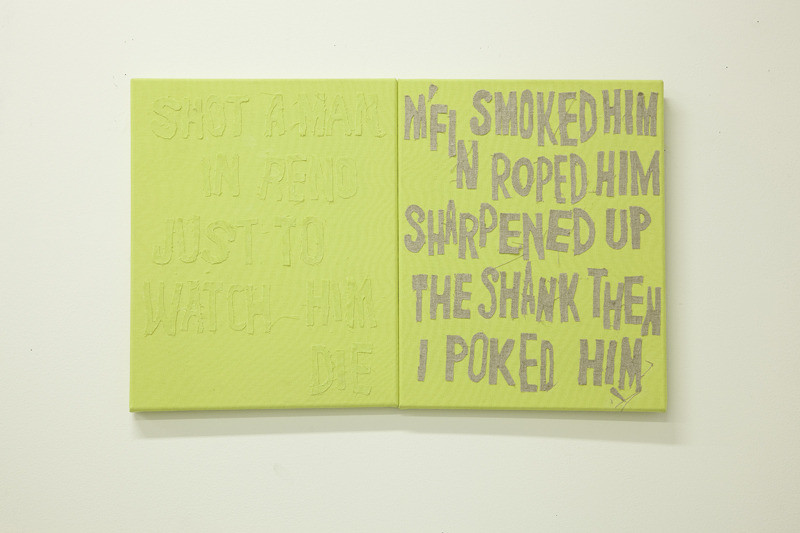 SHOT A MAN
IN RENO
JUST TO
WATCH HIM
DIE
M'FIN SMOKED HIM
ROPED HIM
SHARPENED UP
THE SHANK THEN
I POKED HIM